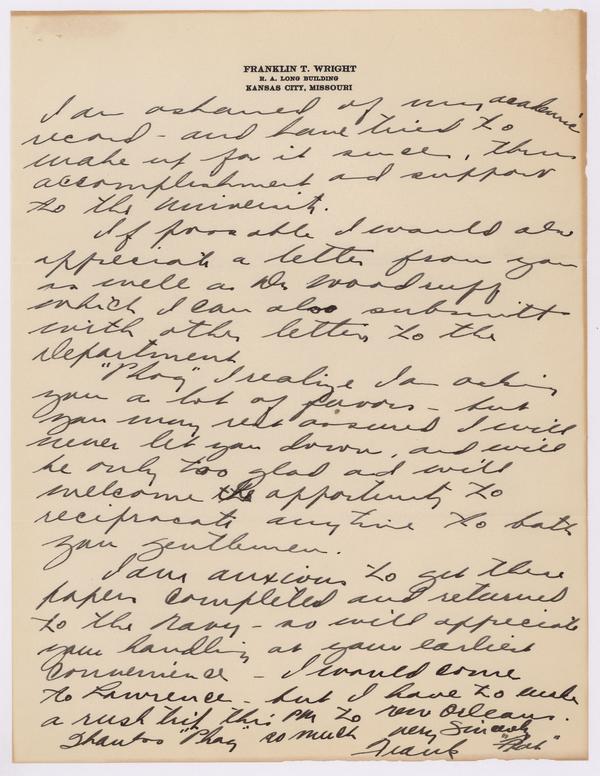 FRANKLIN T. WRIGHT
R. A. LONG BUILDING
KANSAS CITY, MISSOURI
I am ashamed of my academic
record - and have tried to
make up for it since, thru
accomplishment and support
to the University.
If possible I would also
appreciate a letter from you
as well as Dr Woodruff
which I can also submit
with other letters to the
Department
"Phog" I realize I am asking
you a lot of favors - but
you may rest assured I will
never let you down, and will
be only too glad and will
welcome the opportunity to
reciprocate anytime to both
you gentlemen.
I am anxious to get these
papers completed and returned
to the Navy - so will appreciate
your handling at your earliest
convenience - I would come
to Lawrence - but I have to make
a rush trip this PM to New Orleans.
Thanks "Phog" so much very Sincerely
Frank